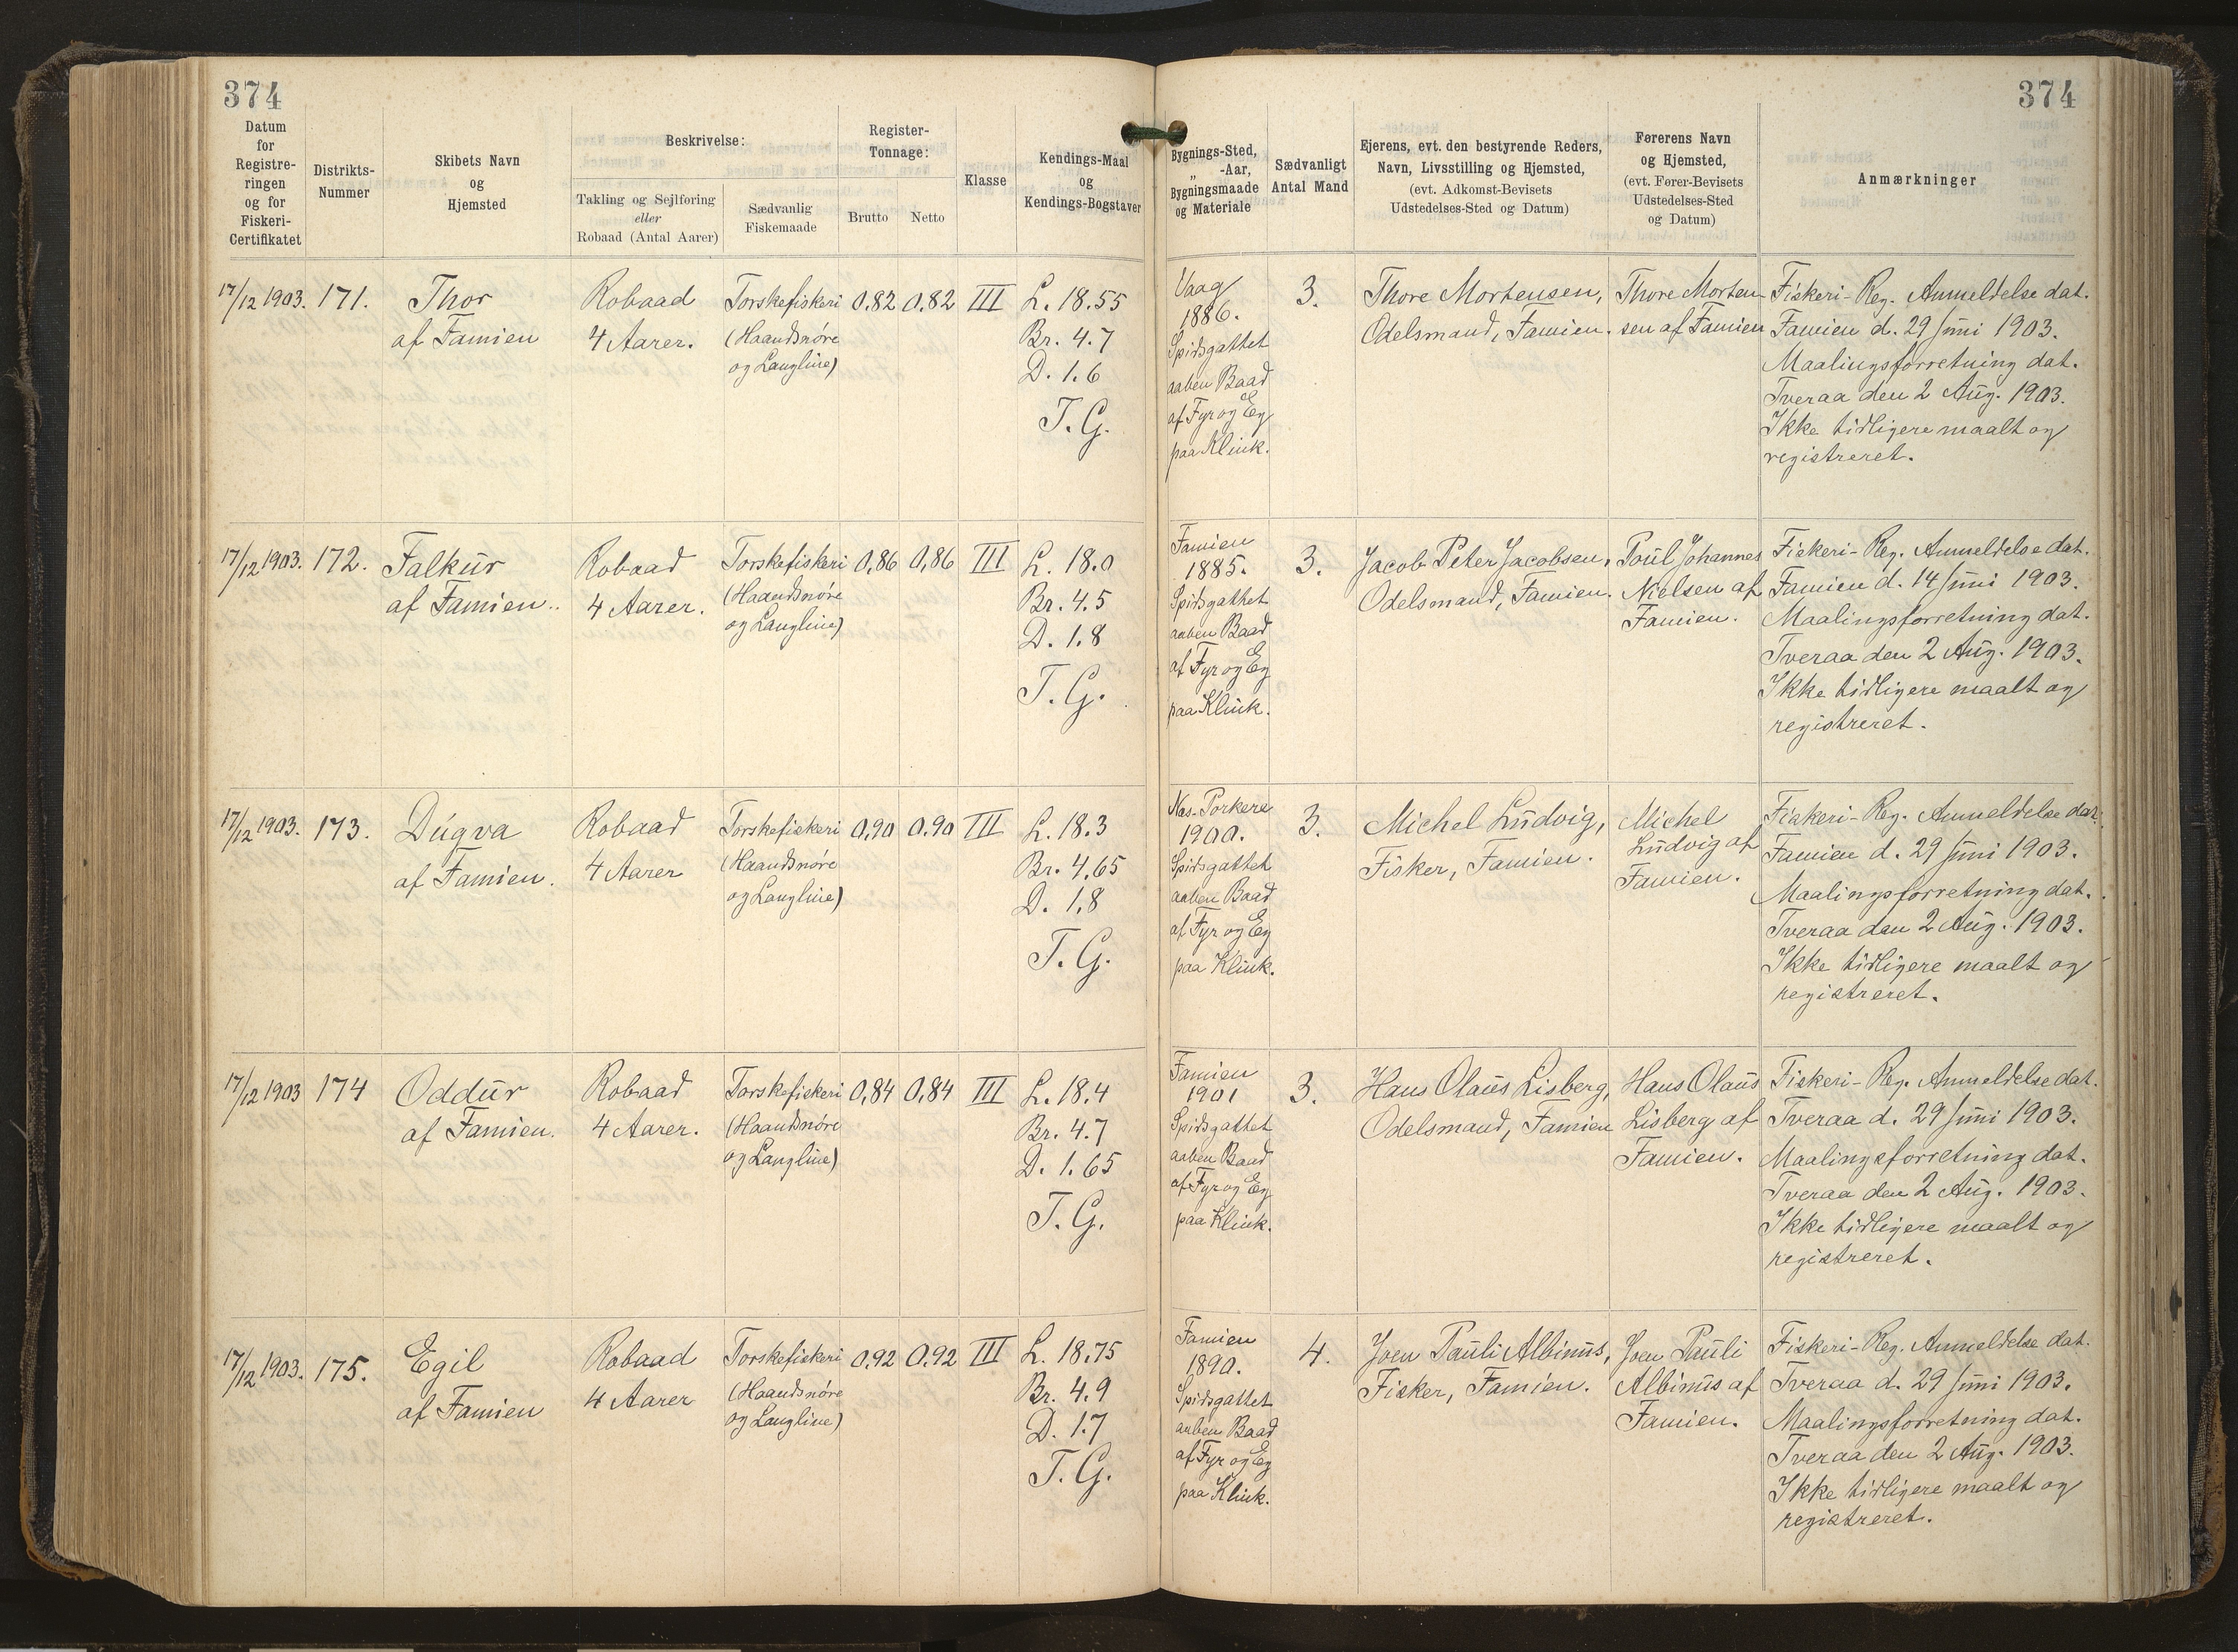 374
374
Datum
for
Registre-
ringen
og for
Fiskeri-
Certifikatet
Distrikts-
Nummer
Skibets Navn
og
Hjemsted
Beskrivelse:
Takling og Sejlføring
eller
Robaad (Antal Aarer)
Sædvanlig
Fiskemaade
Register-
Tonnage:
Brutto
Netto
Klasse
Kendings-Maal
og
Kendings-Bogstaver
Bygnings-Sted,
„ -Aar,
Bygningsmaade
og Materiale
Sædvanligt
Antal Mand
Ejerens, evt. den bestyrende Reders,
Navn, Livsstilling og Hjemsted,
(evt. Adkomst-Bevisets
Udstedelses-Sted og Datum)
Førerens Navn
og Hjemsted,
(evt. Fører-Bevisets
Udstedelses-Sted
og Datum)
Anmærkninger
17/12 1903.
171.
Thor
af Famien
Robaad
4 Aarer.
Torskefiskeri
(Haandsnøre
og Langline)
0,82
0,82
III
L. 18.55
Br. 4.7
D. 1.6
T. G.
Vaag
1886.
Spidsgattet
aaben Baad
af Fyr og Eg
paa Klink.
3.
Thore Mortensen,
Odelsmand, Famien.
Thore Morten-
sen af Famien
Fiskeri-Reg. Anmeldelse dat.
Famien d. 29 Juni 1903.
Maalingsforretning dat.
Tveraa den 2 Aug. 1903.
Ikke tidligere maalt og
registreret.
17/12 1903.
172.
Falkur
af Famien..
Robaad
4 Aarer.
Torskefiskeri
(Haandsnøre
og Langline)
0,86
0,86
III
L. 18.0
Br. 4.5
D. 1.8
T. G.
Famien
1885.
Spidsgattet
aaben Baad
af Fyr og Eg
paa Klink.
3.
Jacob Peter Jacobsen,
Odelsmand, Famien.
Poul Johannes
Nielsen af
Famien.
Fiskeri-Reg. Anmeldelse dat.
Famien d. 14 Juni 1903.
Maalingsforretning dat.
Tveraa den 2 Aug. 1903.
Ikke tidligere maalt og
registreret.
17/12 1903.
173.
Dúgva
af Famien.
Robaad
4 Aarer
Torskefiskeri
(Haandsnøre
og Langline)
0,90
0.90
III
L. 18.3
Br. 4,65
D. 1,8
T. G.
Nas-Porkere
1900.
Spidsgattet
aaben Baad
af Fyr og Eg
paa Klink.
3.
Michel Ludvig,
Fisker, Famien.
Michel
Ludvig af
Famien.
Fiskeri-Reg. Anmeldelse dat.
Famien d. 29 Juni 1903.
Maalingsforretning dat.
Tveraa den 2 Aug. 1903.
Ikke tidligere maalt og
registreret.
17/12 1903
174
Oddur
af Famien.
Robaad
4 Aarer.
Torskefiskeri
(Haandsnøre
og Langline)
0,84
0,84
III
L. 18.4
Br. 4.7
D. 1.65
T. G.
Famien
1901
Spidsgattet
aaben Baad
af Fyr og Eg
paa Klink.
3.
Hans Olaus Lisberg,
Odelsmand, Famien
Hans Olaus
Lisberg af
Famien.
Fiskeri-Reg. Anmeldelse dat.
Tveraa d. 29 Juni 1903.
Maalingsforretning dat.
Tveraa den 2 Aug. 1903.
Ikke tidligere maalt og
registreret.
17/12 1903.
175.
Egil
af Famien
Robaad
4 Aarer
Torskefiskeri
(Haandsnøre
og Langline)
0.92
0.92
III
L. 18.75
Br. 4.9
D. 1.7
T. G.
Famien
1890.
Spidsgattet
aaben Baad
af Fyr og Eg
paa Klink.
4.
Joen Pauli Albinus,
Fisker, Famien.
Joen Pauli
Albinus af
Famien.
Fiskeri-Reg. Anmeldelse dat.
Tveraa d. 29 Juni 1903.
Maalingsforretning dat.
Tveraa den 2 Aug. 1903.
Ikke tidligere maalt og
registreret.